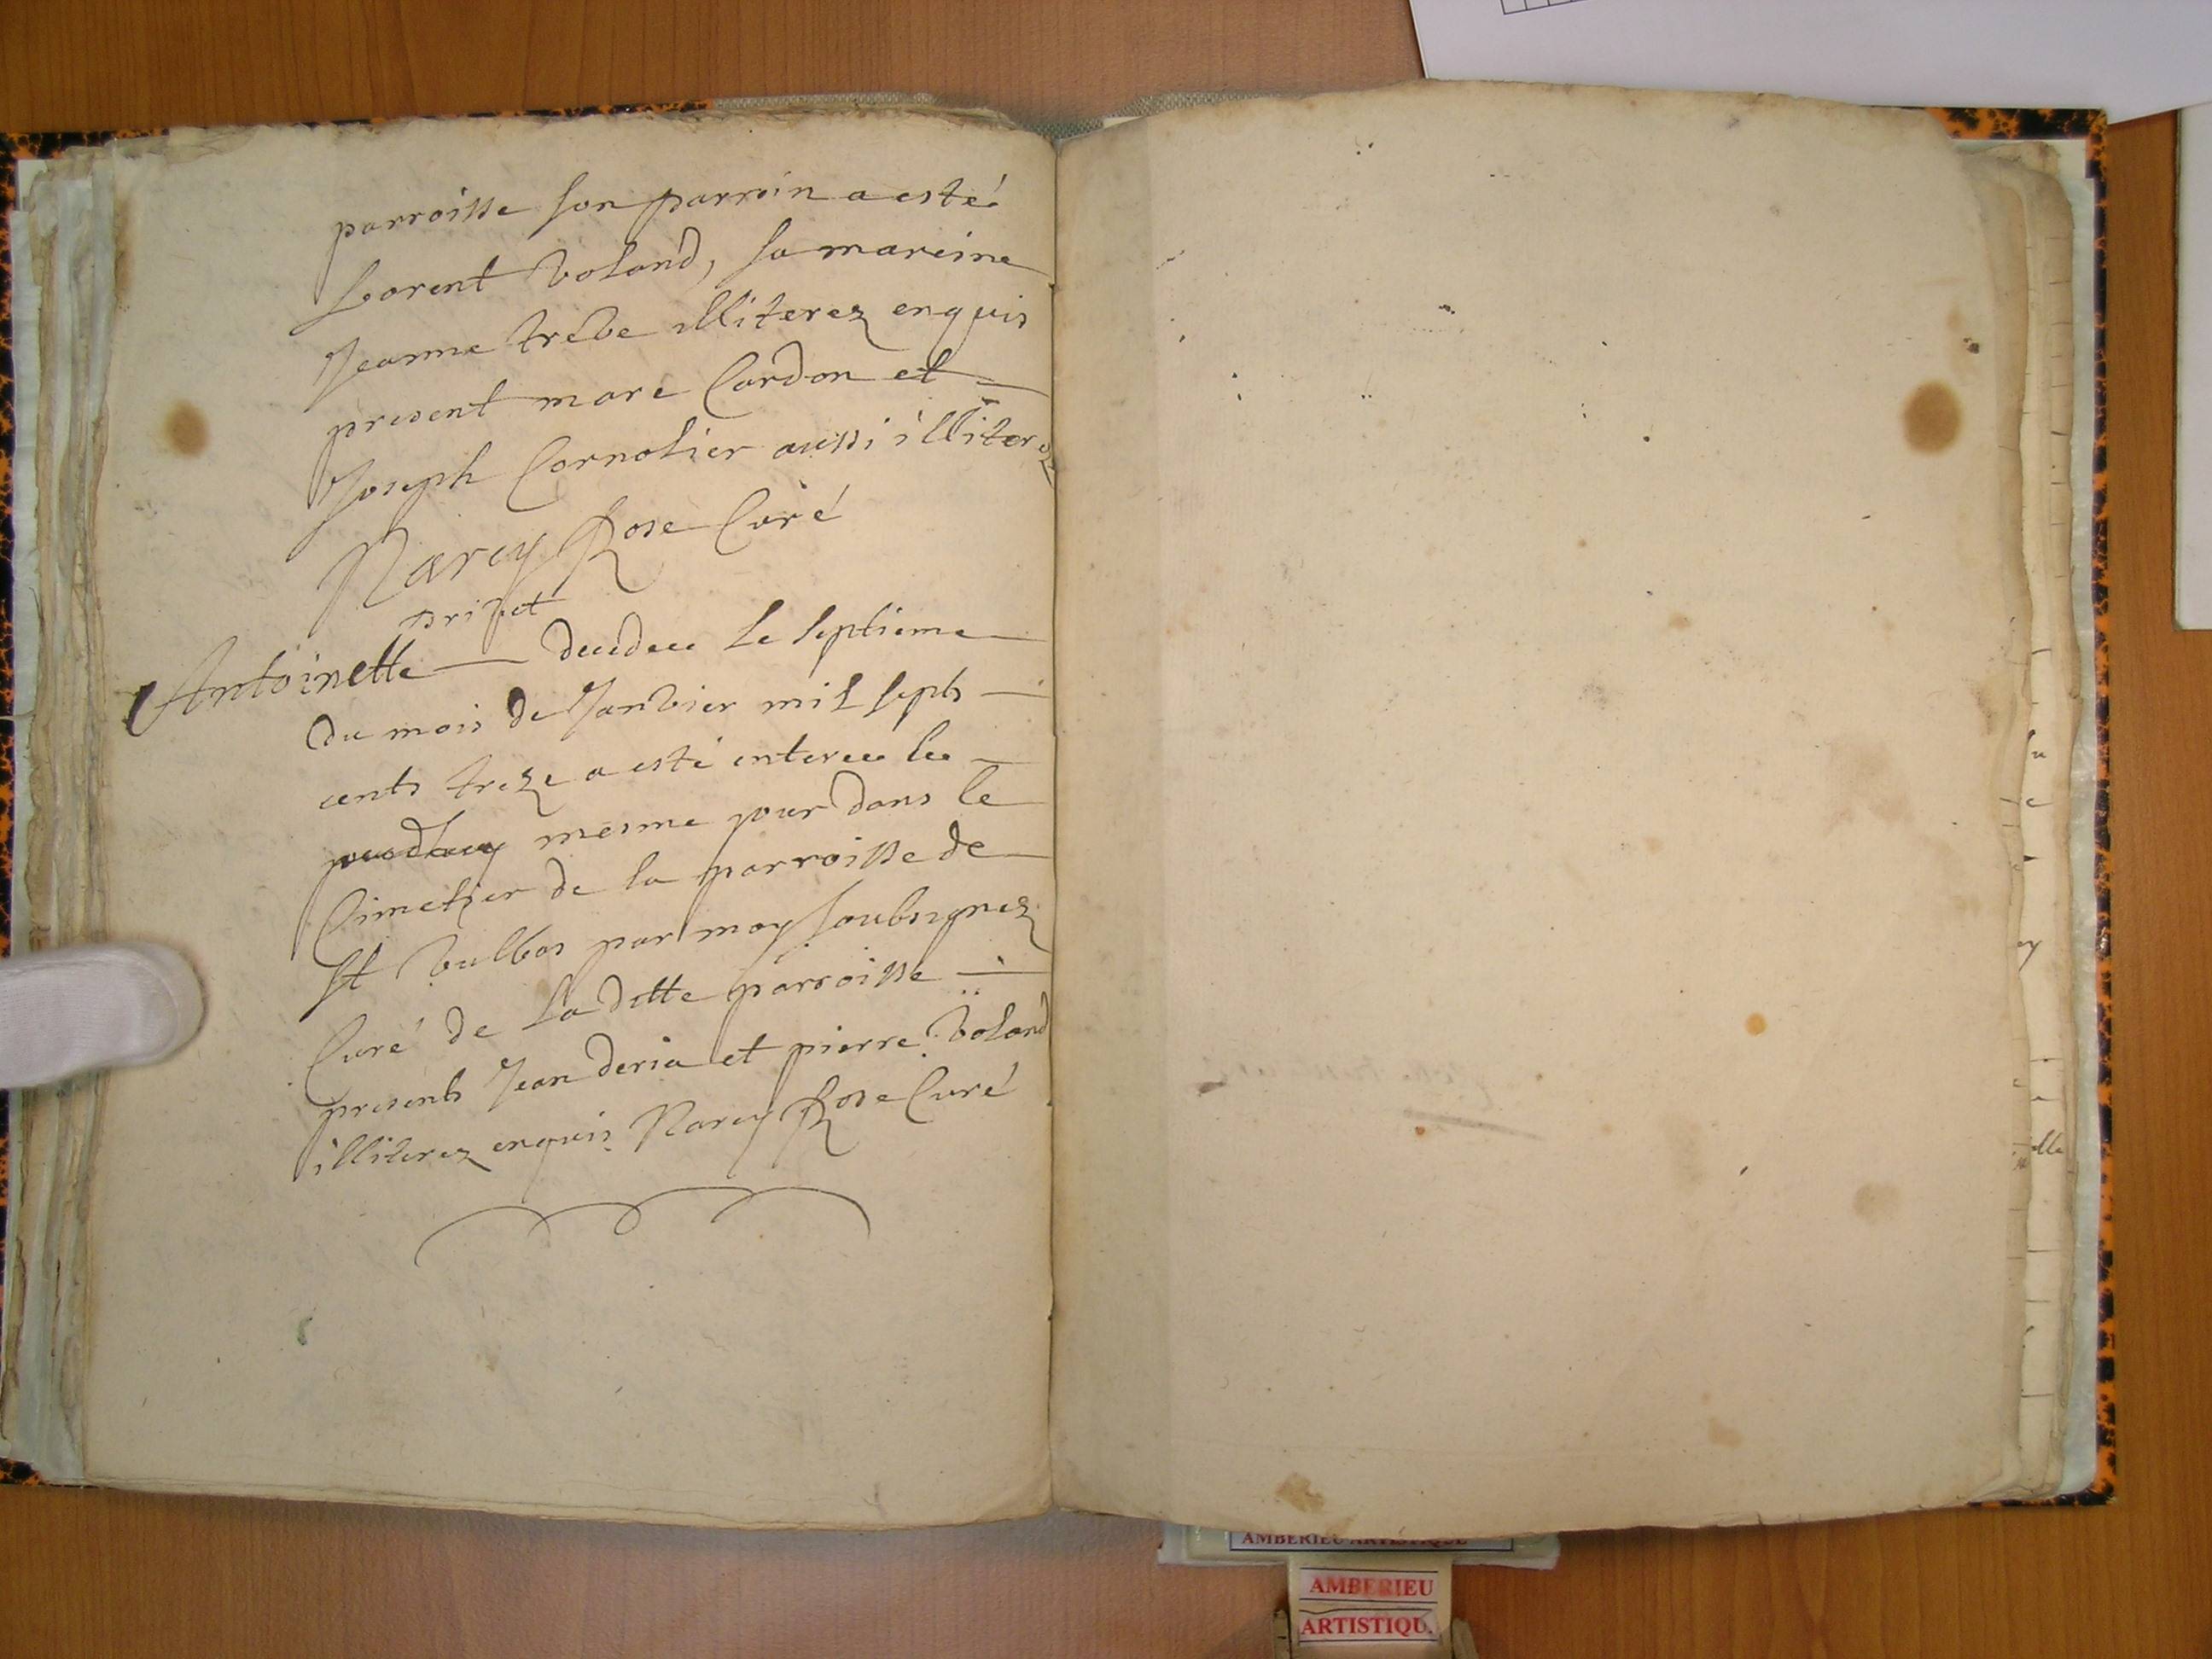 parroisse son parroin a esté
Lorent Voland, sa mareine
Jeanne treve illiterez enquis
present marc Cardon et
Joseph Cornolier aussi illiterez
Narcy Rose Curé
privet
Antoinette decedee Le septieme
du mois de Janvier mil septs
cents treze a esté enteree le
mesme jour dans le
Cimetier de la parroisse de
St Vulbas par moy soubsignez
Curé de Laditte parroisse
presents Jean deria et pierre Voland
illiterez enquis Narcy Rose Curé
AMBERIEU ARTISTIQUE
AMBERIEU
ARTISTIQU